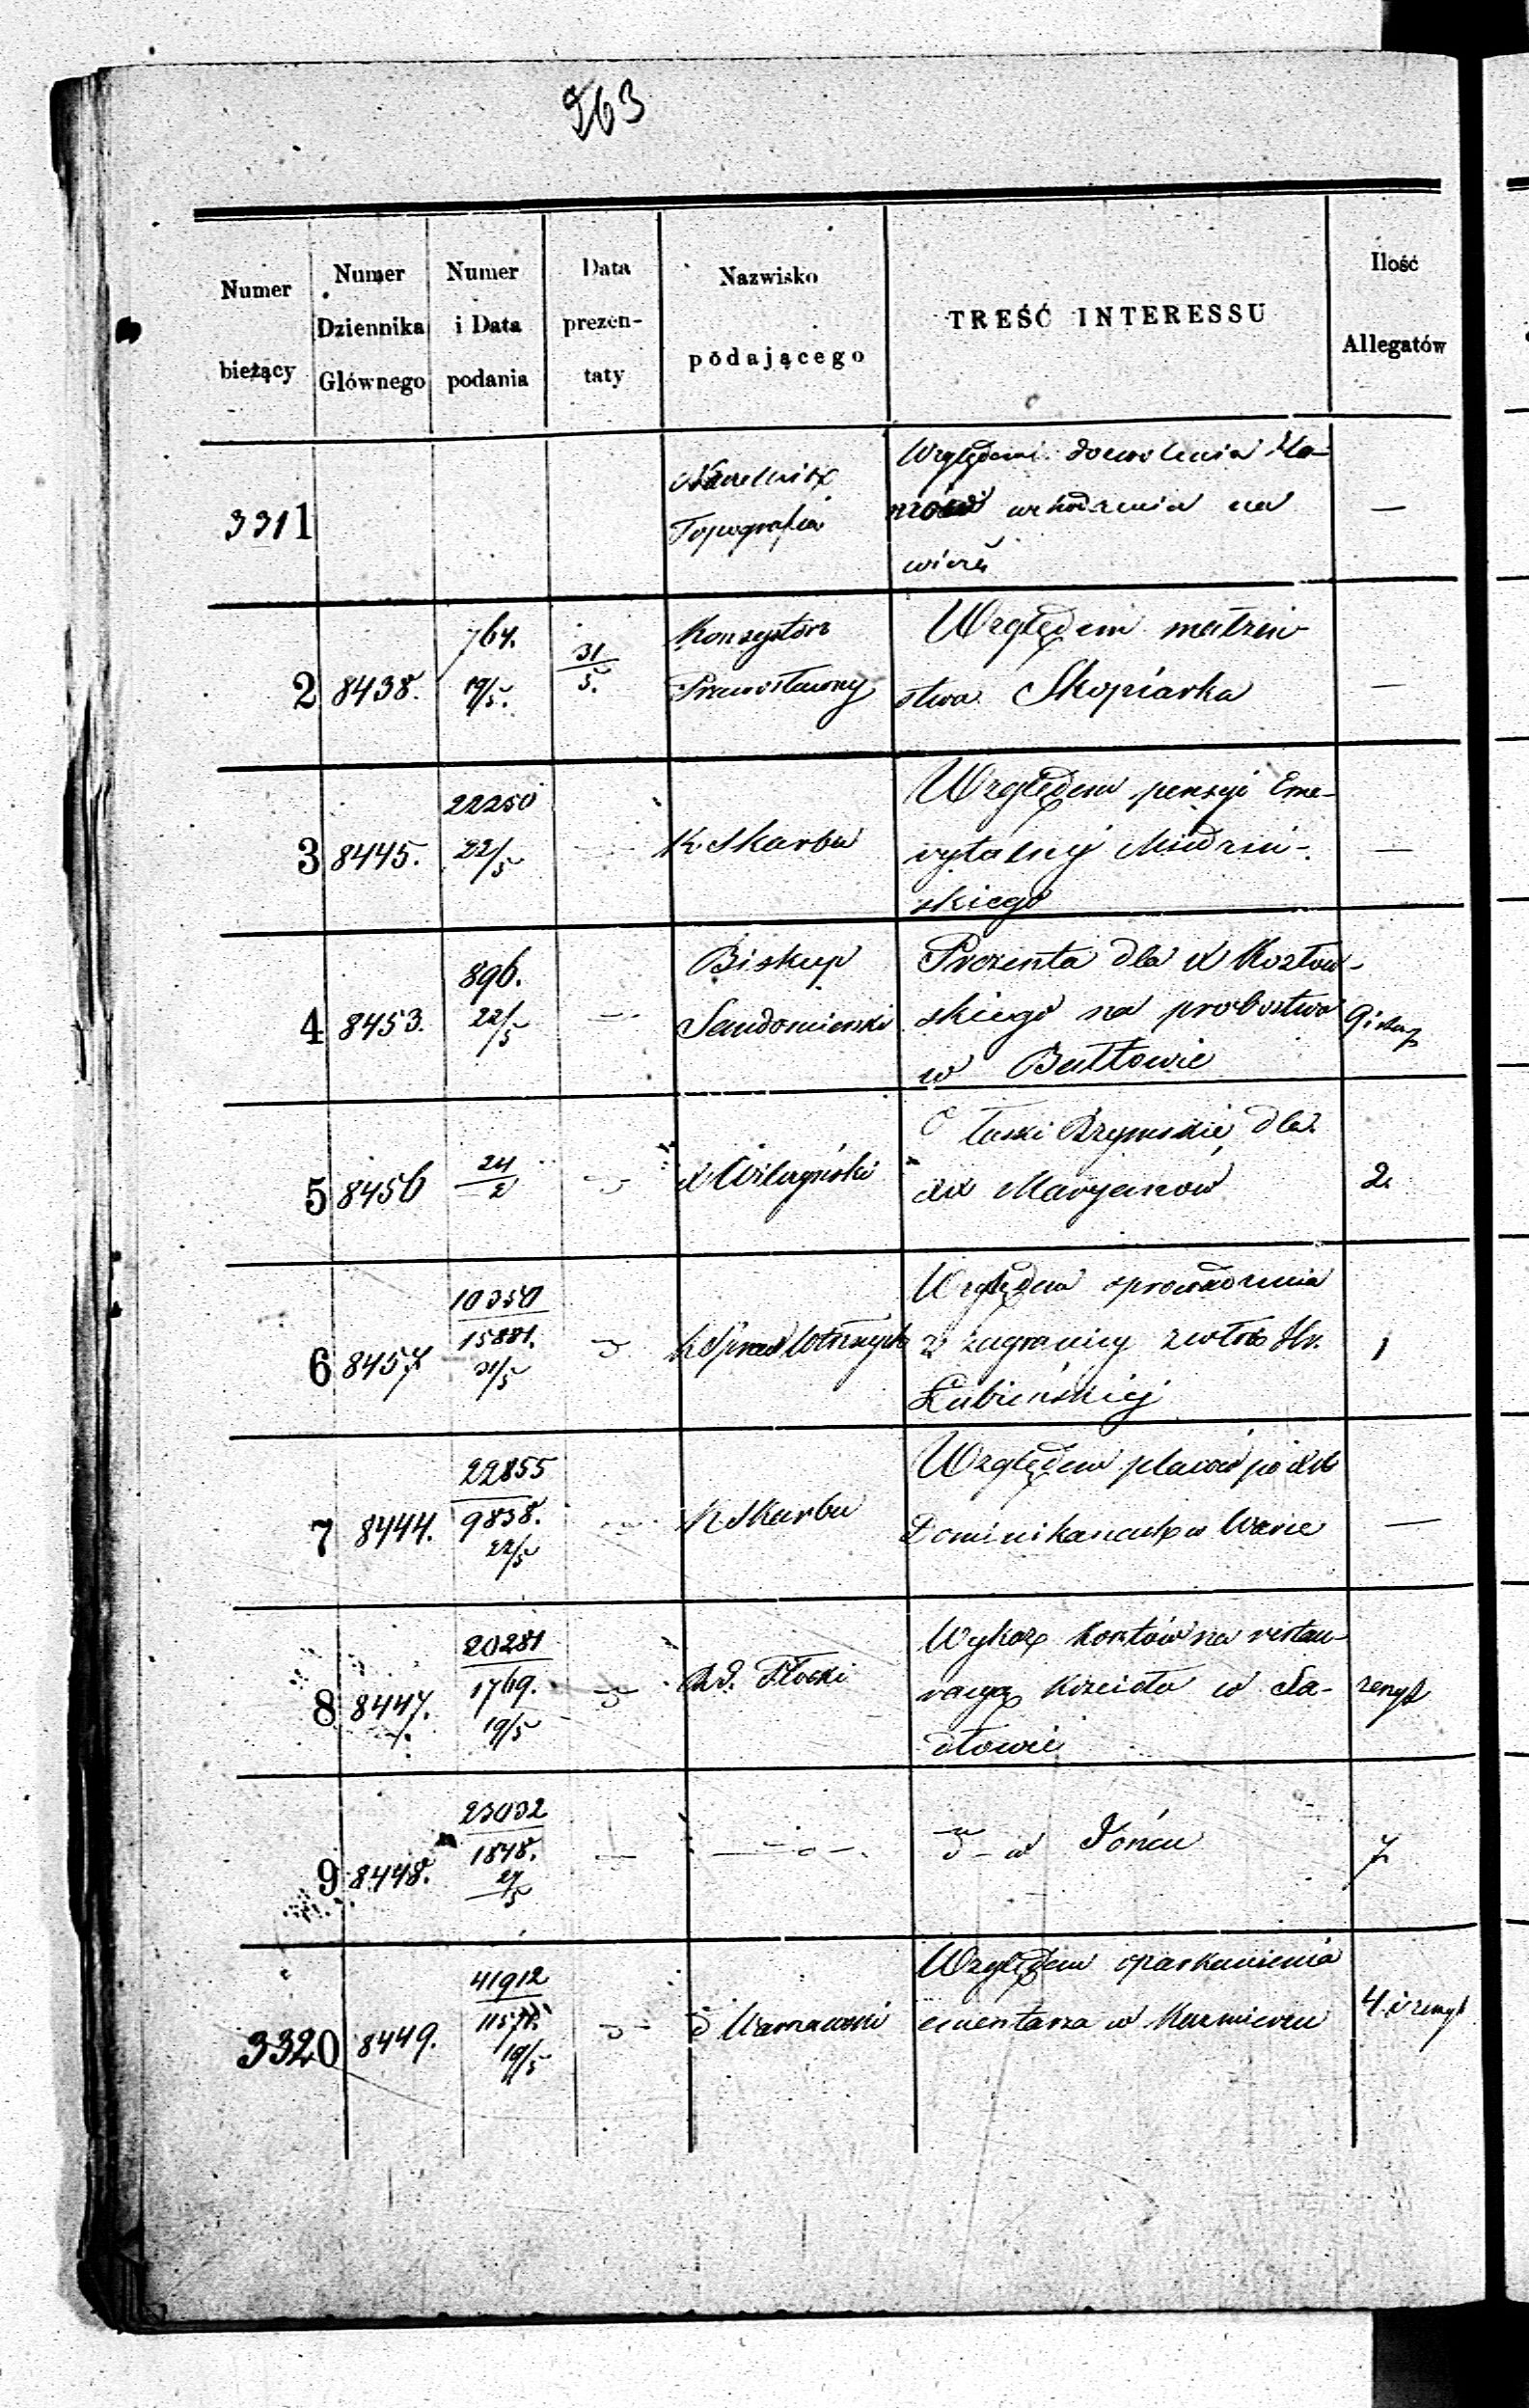 263
Numer bieżący
Numer Dziennika Głównego
Numer i Data podania
Data prezentaty
Nazwisko podającego
TREŚĆ INTERESSU
Ilość Allegatów
3311
Naczelnik
Topografia
Względem dozwolenia
wchodzenia na
wieżę
—
2 8438.
764.
19/5.
31/5.
Konsystorz
Prawosławny
Względem małżeń-
stwa Skopiarka
—
3 8445.
22250
22/5
K. Skarbu
Względem pensyi Eme-
rytalnéj Miedziń-
skiego
—
4 8453.
896.
22/5
—
Biskup
Sandomierski
Prezenta dla X Kozłow-
skiego na probostwo
w Bałtowie
9 i
5 8456
24/2
X
O łaski Rzymskie dla
XX Maryanów
2.
6 8457
10350
15881.
21/5
K Spraw Wewnętrznych
Względem sprowadzenia
z zagranicy zwłok Hr.
Łubieńskiej
1
7 8444.
22855
9838.
22/5
K Skarbu
Względem placów po XX
Dominikanach w Warce
—
8 8447.
20281
1769.
19/5
R. G. Płocki
Wykaz kosztów na restau-
racyą kościoła w Sa-
dłowie
zeszyt
9 8448.
23032
1848.
27/5
—
— " —
d° — w Jońcu
7.
3320 8449.
41912
19/5
d° Warszawski
Względem oparkanienia
cmentarza w Kazmierzu
4 i zeszyt